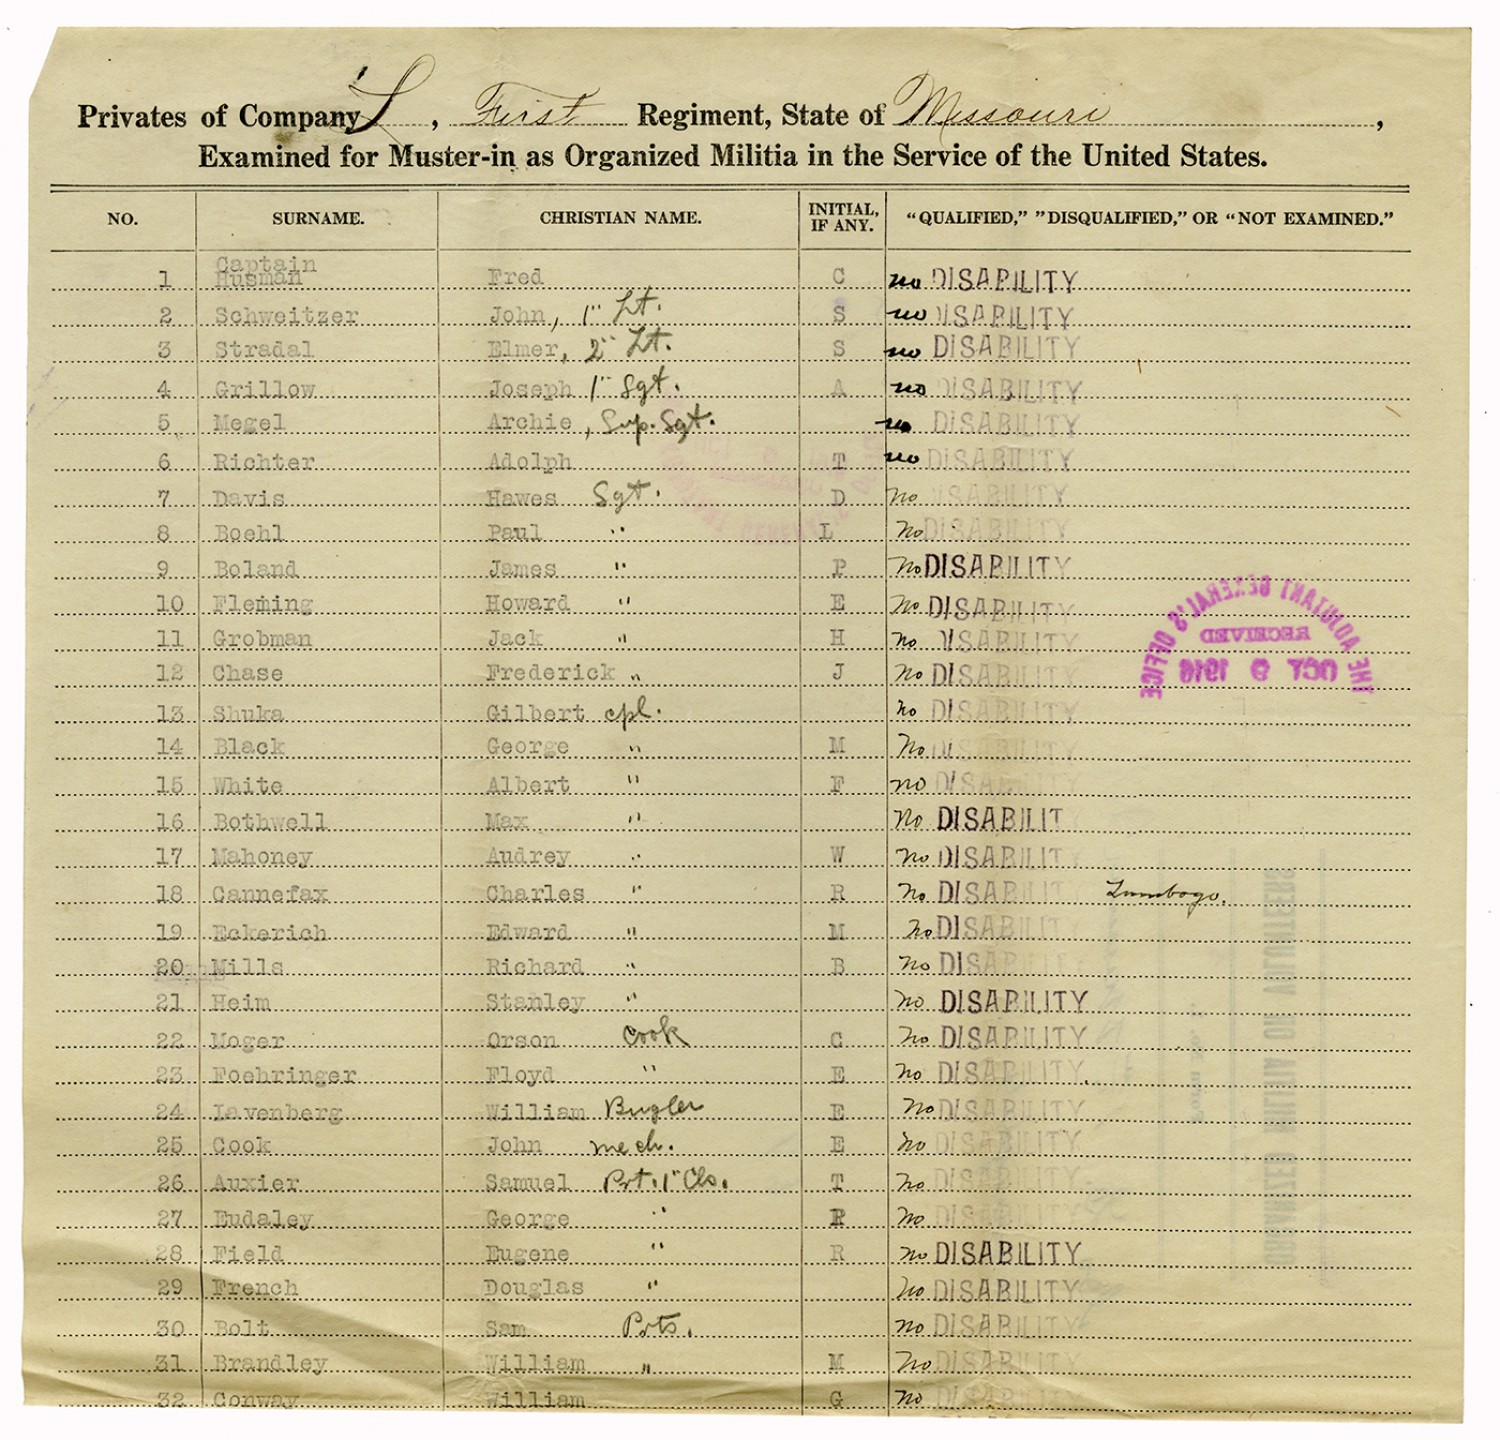 Privates of Company L, First Regiment, State of Missouri,
Examined for Muster-in as Organized Militia in the Service of the United States.
NO. SURNAME. CHRISTIAN NAME. INITIAL, IF ANY. "QUALIFIED," "DISQUALIFIED," OR "NOT EXAMINED."
Captain
1 Husman Fred C no DISABILITY
2 Schweitzer John, 1" Lt. S no DISABILITY
3 Stradal Elmer, 2" Lt. S no DISABILITY
4 Grillow Joseph 1" Sgt. A no DISABILITY
5 Megel Archie, Sup. Sgt. no DISABILITY
6 Richter Adolph T no DISABILITY
7 Davis Hawes Sgt. D No DISABILITY
8 Boehl Paul " L No DISABILITY
9 Boland James " P No DISABILITY
10 Fleming Howard " E No DISABILITY
11 Grobman Jack " H No DISABILITY
12 Chase Frederick " J No DISABILITY
13 Shuka Gilbert cpl. no DISABILITY
14 Black George " M No DISABILITY
15 White Albert " F no DISABILITY
16 Bothwell Max " No DISABILIT
17 Mahoney Audrey " W No DISABILITY
18 Cannefax Charles " R No DISABILITY Lumbago.
19 Eckerich Edward " M No DISABILITY
20 Mills Richard " B No DISABILITY
21 Heim Stanley " No DISABILITY
22 Moger Orson Cook C No DISABILITY
23 Foehringer Floyd " E No DISABILITY
24 Lavenberg William Bugler E No DISABILITY
25 Cook John mech. E No DISABILITY
26 Auxier Samuel Prt. 1" Cls. T No DISABILITY
27 Eudaley George " No DISABILITY
28 Field Eugene " R No DISABILITY
29 French Douglas " No DISABILITY
30 Bolt Sam Prts. No DISABILITY
31 Brandley William " M No DISABILITY
32 Conway William G No DISABILITY
THE ADJUTANT GENERAL'S OFFICE
RECEIVED
OCT 9 1916
ORGANIZED MILITIA OR VOLUNTEERS